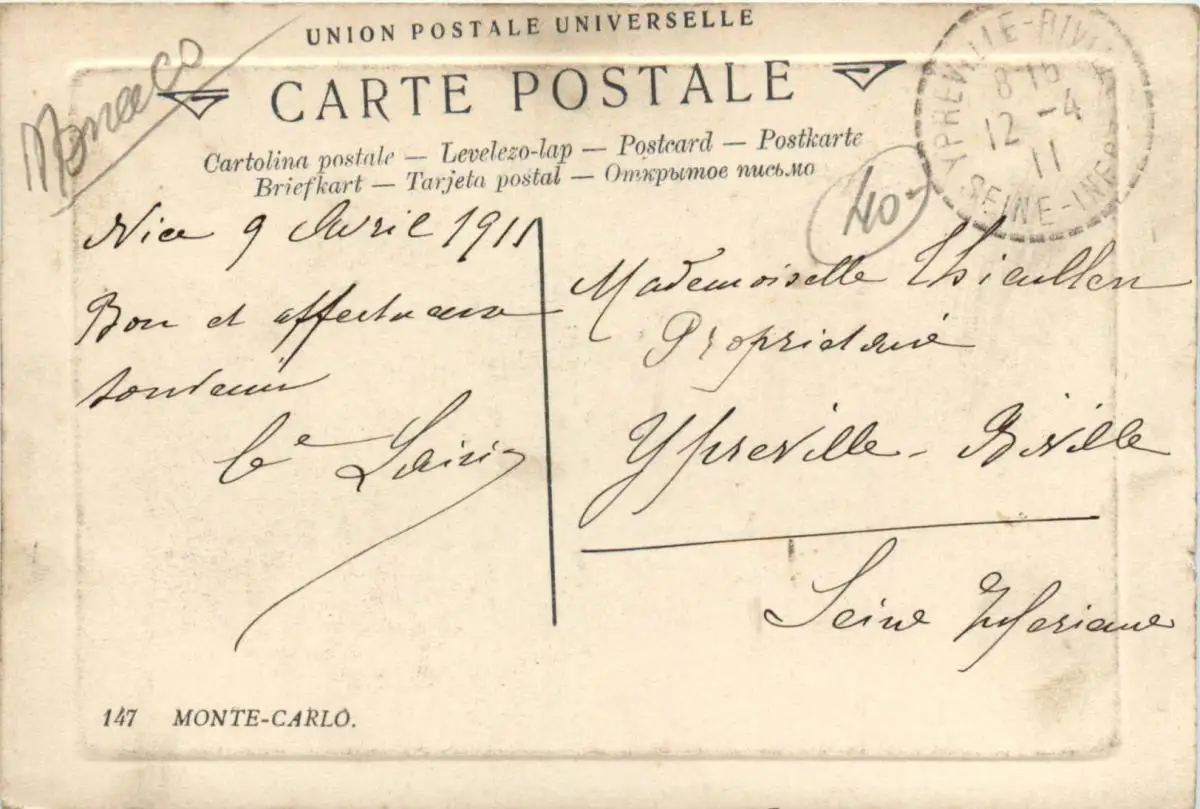 UNION POSTALE UNIVERSELLE
Monaco
CARTE POSTALE
Cartolina postale — Levelezo-lap — Postcard — Postkarte
Briefkart — Tarjeta postal — Открытое письмо
YPREVILLE-BIVILLE
8 15
12 -4
11
SEINE-INFRE
40-
Nice 9 Avril 1911
Bon et affectueux
souvenir
Mademoiselle Thieullen
Propriétaire
Ypreville - Biville
Seine Inferieure
147 MONTE-CARLO.